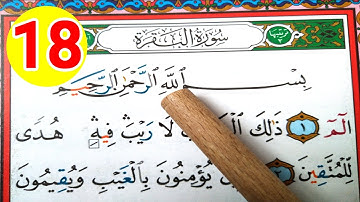 18
سُورَةُ الْبَقَرَةِ
بِسْمِ اللَّهِ الرَّحْمَٰنِ الرَّحِيمِ
الٓمٓ ١ ذَٰلِكَ لَا رَيْبَ فِيهِ هُدًى
لِّلْمُتَّقِينَ يُؤْمِنُونَ بِالْغَيْبِ وَيُقِيمُونَ